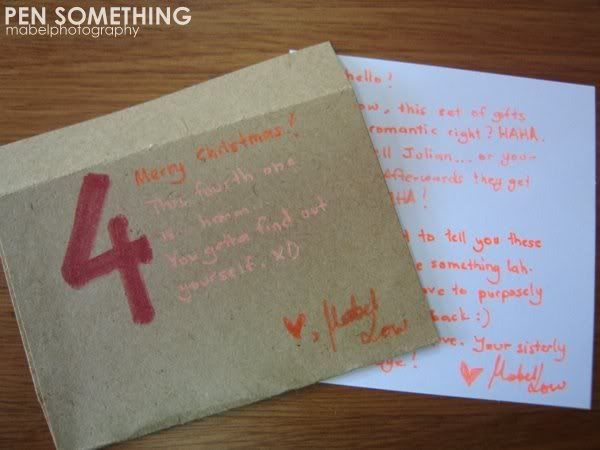 PEN SOMETHING
mabelphotography
4
Merry Christmas!
This fourth one
is.. hmmm...
You gotta find out
yourself. XD
♥, Mabel
Low
hello!
this set of gifts
romantic right? HAHA.
Julian... or you-
Afterwards they get
HA!
to tell you these
something lah.
to purposely
back :)
Your sisterly
♥ Mabel
Low